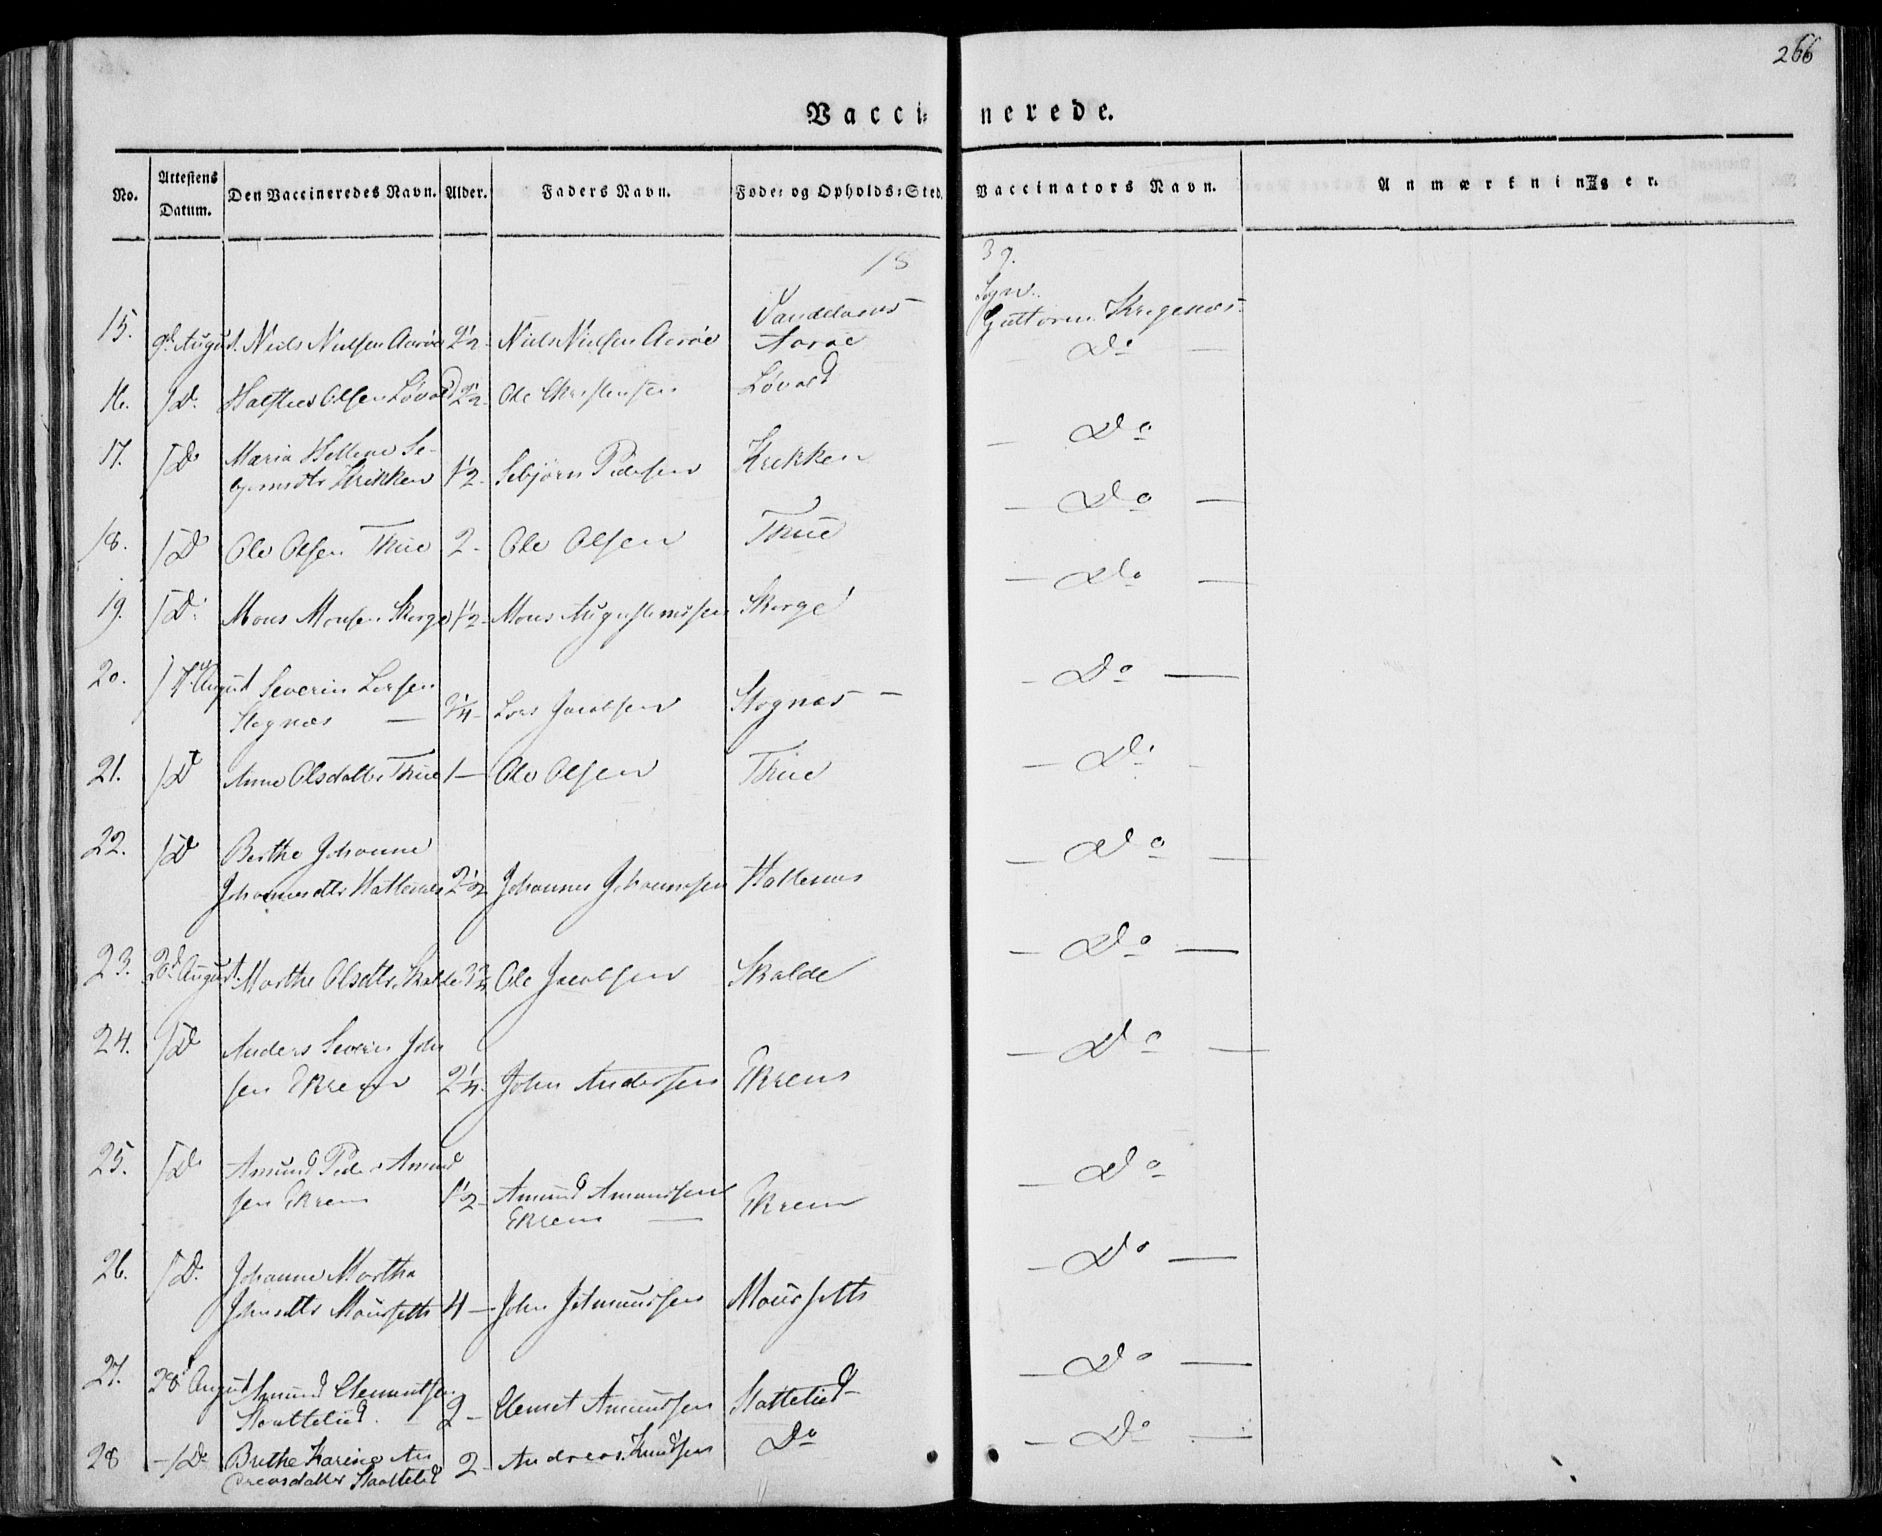 266
Vaccinerede.
No. Attestens Datum. Den Vaccineredes Navn. Alder. Faders Navn. Føde- og Opholds-Sted. Vaccinators Navn. Anmærkninger.
1839.
Sogn.
15. August. Niels Nielsen Aarøe 2½ Niels Nielsen Aarøe Aarøe Do
16. Do Olsen Løvold 2½ Ole Christensen Løvold Do
17. Do Maria Hellene Se-
Krikken 1½ Sebjørn Pedersen Krikken Do
18. Do Ole Olsen Thue 2 - Ole Olsen Thue Do
19. Do Mons Monsen Skorge 1½ Mons Augustinussen Skorge Do
20. 17d August Severin Larsen
Stognæs — ¾ - Lars Jacobsen Stognæs - Do
21. Do Anne Olsdatter Thue 1 — Ole Olsen Thue Do
22. Do Berthe Johanne
Johannesdtr Hatlenæs 2½ Johannes Johannessen Hatlenæs Do
23. August. Marthe Olsdtr. Skalde Ole Jacobsen Skalde Do
24. Do Anders Severin John
sen Ekrem 2¼ John Andersen Ekrem Do
25. Do Amund Peder Amund
sen Ekrem 1½ Amund Amundsen
Ekrem — Ekrem Do
26. Do Johanne Martha
Johnsdtr Moursetth 4 — John Moursetth Do
27. 28d August Amund Clemmetsen
Stattelied. 2 - Clemet Amundsen Stattelied Do
28 Do Brithe Karine An
dreasdatter Stattelied 2 - Andreas Knudsen Do Do